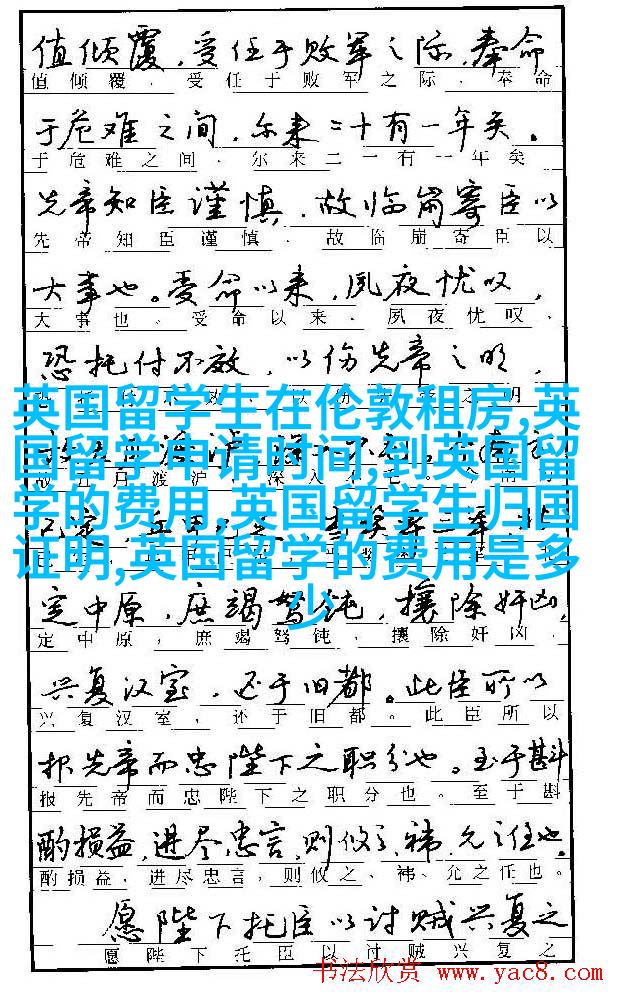 值倾覆，受任于败军之际，奉命
值倾覆，受任于败军之际，奉命
于危难之间，尔来二十有一年矣。
于危难之间，尔来二一有一年矣
先帝知臣谨慎，故临崩寄臣以
先帝知臣谨慎，故临崩寄臣以
大事也。受命以来，夙夜忧叹，
大事也。受命以来，夙夜忧叹，
恐托付不效，以伤先帝之明，
之明
英国留学生在伦敦租房,英
国留学申请时间,到英国留
渡泸，深入
学的费用,英国留学生归国
证明,英国留学的费用是多
少
定中原，庶竭驽钝，攘除奸凶，
定中原，庶竭驽钝，攘除奸凶，
兴复汉室，还于旧都。此臣所以
兴复汉室，还于旧都。此臣所以
报先帝而忠陛下之职分也。至于斟
报先帝而忠陛下之职分也。至于斟
酌损益，进尽忠言，则攸之、祎、允之任也。
酌损益，进尽忠言，则攸之、祎、允之任也。
愿陛下托臣以讨贼兴复之
愿陛下托臣以讨贼兴复之
书法欣赏 www.yac8.com